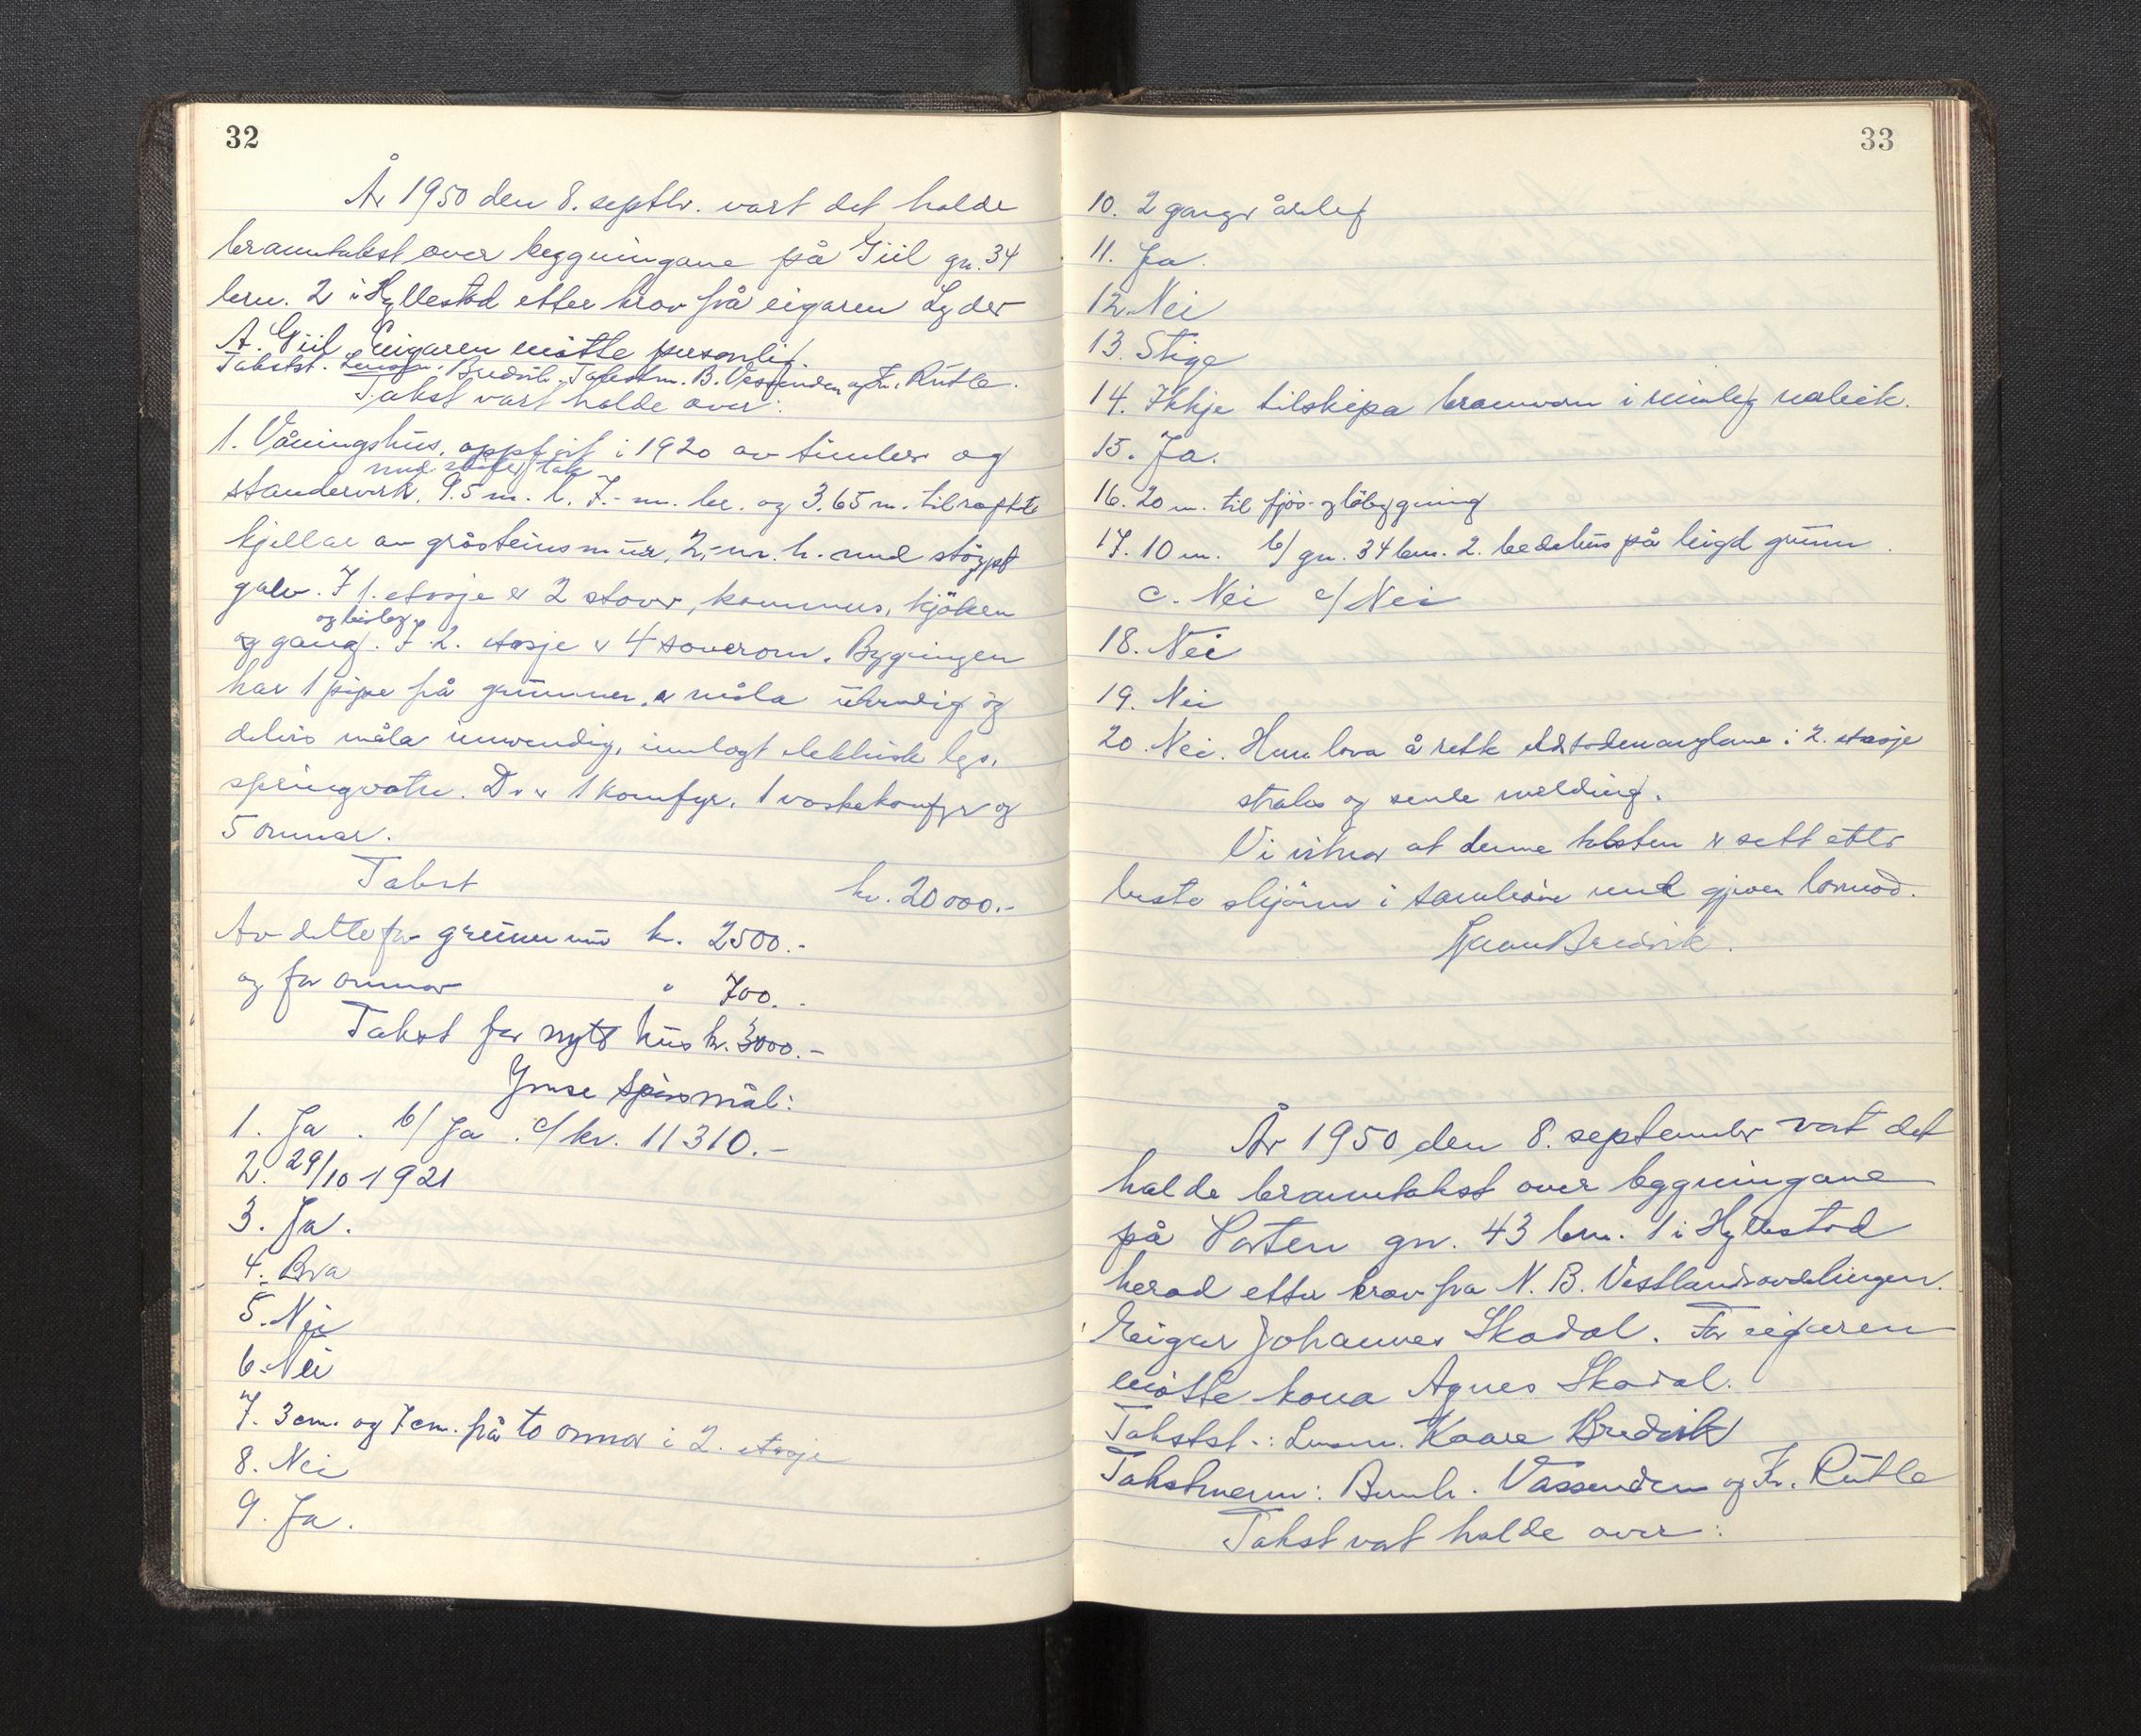 32
År 1950 den 8. septbr. vart det halde
branntakst over byggningane på Giil gn. 34
brn. 2 i Hyllestad etter krav frå eigaren Lyder
A. Giil. Eigaren møtte personlig.
Takstst. Lensm. Bredvik. Takstm. B. Vassenden og Kr. Rutle.
Takst vart halde over:
1. Våningshus, oppført i 1920 av timber og
med skifertak
standerverk, 9.5 m. l. 7.- m. br. og 3.65 m. til raft
kjellar av gråsteinsmur, 2,- m. h. med støypt
golv. I 1. etasje er 2 stover, kammers, kjøken
og bislag
og gang. I 2. etasje er 4 soverom. Bygningen
har 1 pipe frå grunnen, er måla utvendig og
delvis måla innvendig, innlagt elektrisk lys,
springvatn. Der er 1 komfyr, 1 vaskekomfyr og
5 omnar.
Takst kr. 20 000.-
Av dette for grunnmur kr. 2500.-
og for omnar " 700.-
Takst for nytt hus kr. 3000.-
Ymse spørsmål:
1. Ja. b/ Ja. c/ kr. 11310.-
2. 29/10 1921
3. Ja.
4. Bra
5. Nei
6. Nei
7. 3 cm. og 7 cm. på to omnar i 2. etasje
8. Nei
9. Ja.
33
10. 2 gongr årleg
11. Ja.
12. Nei
13. Stige
14. Ikkje tilskipa brannvern i rimleg nærleik.
15. Ja.
16. 20 m. til fjøs- og løbygning
17. 10 m. b/ gn. 34 brn. 2. bedehus på leigd grunn.
c. Nei e/ Nei
18. Nei
19. Nei
20. Nei. Hun lova å rette eldstadmanglane i 2. etasje
straks og sende melding.
Vi vitnar at denne taksten er sett etter
beste skjønn i samhøve med gjeven lovnad.
Kaare Bredvik.
År 1950 den 8. september vart det
halde branntakst over byggningane
på Porten gn. 43 brn. 1 i Hyllestad
herad etter krav fra N. B. Vestlandsavdelingen.
Eigar Johannes Skadal. For eigaren
møtte kona Agnes Skadal.
Takstst.: Lensm. Kaare Bredvik
Takstmenn: Bernh. Vassenden og Kr. Rutle
Takst vart halde over: